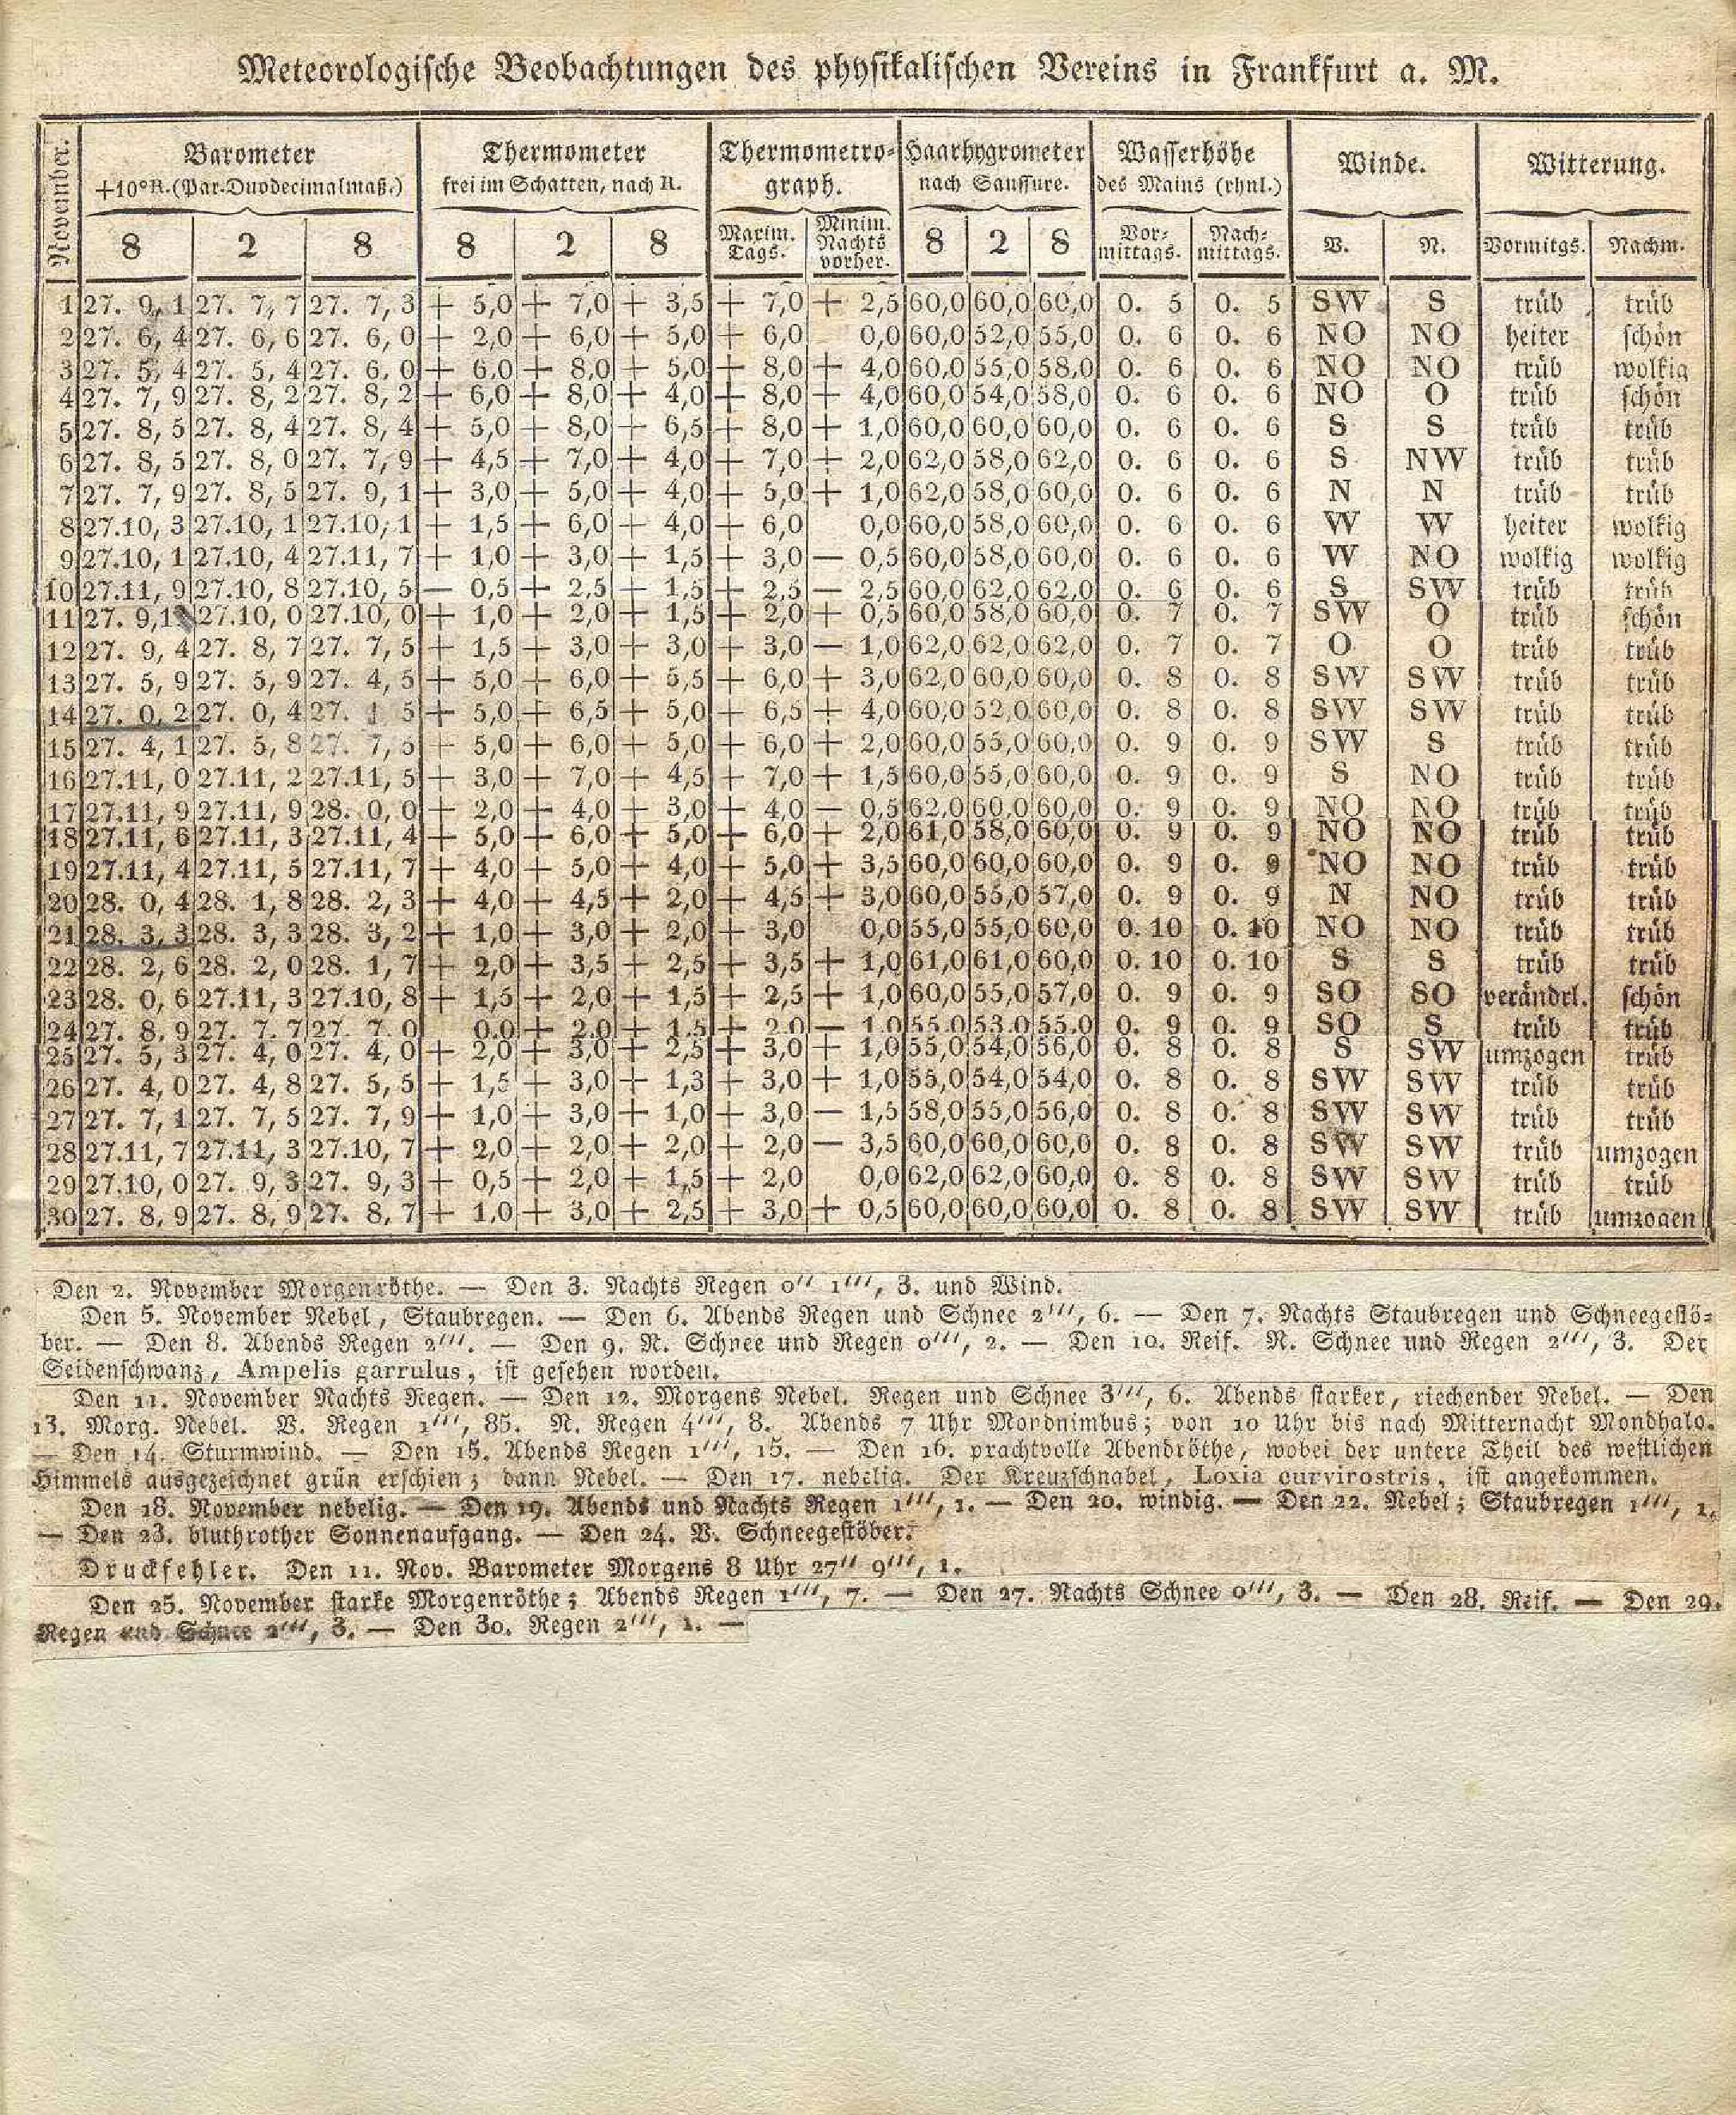 Meteorologische Beobachtungen des physikalischen Vereins in Frankfurt a. M.
November. Barometer Thermometer Thermometro- Haarhygrometer Wasserhöhe Winde. Witterung.
+10°R.(Par.Duodecimalmaß.) frei im Schatten, nach R. graph. nach Saussure. des Mains (rhnl.)
8 2 8 8 2 8 Maxim. Tags. Minim. Nachts vorher. 8 2 8 Vor-mittags. Nach-mittags. V. N. Vormitgs. Nachm.
1 27. 9, 1 27. 7, 7 27. 7, 3 + 5,0 + 7,0 + 3,5 + 7,0 + 2,5 60,0 60,0 60,0 0. 5 0. 5 SW S trüb trüb
2 27. 6, 4 27. 6, 6 27. 6, 0 + 2,0 + 6,0 + 5,0 + 6,0 0,0 60,0 52,0 55,0 0. 6 0. 6 NO NO heiter schön
3 27. 5, 4 27. 5, 4 27. 6, 0 + 6,0 + 8,0 + 5,0 + 8,0 + 4,0 60,0 55,0 58,0 0. 6 0. 6 NO NO trüb wolkig
4 27. 7, 9 27. 8, 2 27. 8, 2 + 6,0 + 8,0 + 4,0 + 8,0 + 4,0 60,0 54,0 58,0 0. 6 0. 6 NO O trüb schön
5 27. 8, 5 27. 8, 4 27. 8, 4 + 5,0 + 8,0 + 6,5 + 8,0 + 1,0 60,0 60,0 60,0 0. 6 0. 6 S S trüb trüb
6 27. 8, 5 27. 8, 0 27. 7, 9 + 4,5 + 7,0 + 4,0 + 7,0 + 2,0 62,0 58,0 62,0 0. 6 0. 6 S NW trüb trüb
7 27. 7, 9 27. 8, 5 27. 9, 1 + 3,0 + 5,0 + 4,0 + 5,0 + 1,0 62,0 58,0 60,0 0. 6 0. 6 N N trüb trüb
8 27.10, 3 27.10, 1 27.10, 1 + 1,5 + 6,0 + 4,0 + 6,0 0,0 60,0 58,0 60,0 0. 6 0. 6 W W heiter wolkig
9 27.10, 1 27.10, 4 27.11, 7 + 1,0 + 3,0 + 1,5 + 3,0 — 0,5 60,0 58,0 60,0 0. 6 0. 6 W NO wolkig wolkig
10 27.11, 9 27.10, 8 27.10, 5 — 0,5 + 2,5 + 1,5 + 2,5 — 2,5 60,0 62,0 62,0 0. 6 0. 6 S SW trüb trüb
11 27. 9,1 27.10, 0 27.10, 0 + 1,0 + 2,0 + 1,5 + 2,0 + 0,5 60,0 58,0 60,0 0. 7 0. 7 SW O trüb schön
12 27. 9, 4 27. 8, 7 27. 7, 5 + 1,5 + 3,0 + 3,0 + 3,0 — 1,0 62,0 62,0 62,0 0. 7 0. 7 O O trüb trüb
13 27. 5, 9 27. 5, 9 27. 4, 5 + 5,0 + 6,0 + 5,5 + 6,0 + 3,0 62,0 60,0 60,0 0. 8 0. 8 SW SW trüb trüb
14 27. 0, 2 27. 0, 4 27. 1 5 + 5,0 + 6,5 + 5,0 + 6,5 + 4,0 60,0 52,0 60,0 0. 8 0. 8 SW SW trüb trüb
15 27. 4, 1 27. 5, 8 27. 7, 5 + 5,0 + 6,0 + 5,0 + 6,0 + 2,0 60,0 55,0 60,0 0. 9 0. 9 SW S trüb trüb
16 27.11, 0 27.11, 2 27.11, 5 + 3,0 + 7,0 + 4,5 + 7,0 + 1,5 60,0 55,0 60,0 0. 9 0. 9 S NO trüb trüb
17 27.11, 9 27.11, 9 28. 0, 0 + 2,0 + 4,0 + 3,0 + 4,0 — 0,5 62,0 60,0 60,0 0. 9 0. 9 NO NO trüb trüb
18 27.11, 6 27.11, 3 27.11, 4 + 5,0 + 6,0 + 5,0 + 6,0 + 2,0 61,0 58,0 60,0 0. 9 0. 9 NO NO trüb trüb
19 27.11, 4 27.11, 5 27.11, 7 + 4,0 + 5,0 + 4,0 + 5,0 + 3,5 60,0 60,0 60,0 0. 9 0. 9 NO NO trüb trüb
20 28. 0, 4 28. 1, 8 28. 2, 3 + 4,0 + 4,5 + 2,0 + 4,5 + 3,0 60,0 55,0 57,0 0. 9 0. 9 N NO trüb trüb
21 28. 3, 3 28. 3, 3 28. 3, 2 + 1,0 + 3,0 + 2,0 + 3,0 0,0 55,0 55,0 60,0 0. 10 0. 10 NO NO trüb trüb
22 28. 2, 6 28. 2, 0 28. 1, 7 + 2,0 + 3,5 + 2,5 + 3,5 + 1,0 61,0 61,0 60,0 0. 10 0. 10 S S trüb trüb
23 28. 0, 6 27.11, 3 27.10, 8 + 1,5 + 2,0 + 1,5 + 2,5 + 1,0 60,0 55,0 57,0 0. 9 0. 9 SO SO verändrl. schön
24 27. 8, 9 27. 7, 7 27. 7, 0 0,0 + 2,0 + 1,5 + 2,0 — 1,0 55,0 53,0 55,0 0. 9 0. 9 SO S trüb trüb
25 27. 5, 3 27. 4, 0 27. 4, 0 + 2,0 + 3,0 + 2,5 + 3,0 + 1,0 55,0 54,0 56,0 0. 8 0. 8 S SW umzogen trüb
26 27. 4, 0 27. 4, 8 27. 5, 5 + 1,5 + 3,0 + 1,3 + 3,0 + 1,0 55,0 54,0 54,0 0. 8 0. 8 SW SW trüb trüb
27 27. 7, 1 27. 7, 5 27. 7, 9 + 1,0 + 3,0 + 1,0 + 3,0 — 1,5 58,0 55,0 56,0 0. 8 0. 8 SW SW trüb trüb
28 27.11, 7 27.11, 3 27.10, 7 + 2,0 + 2,0 + 2,0 + 2,0 — 3,5 60,0 60,0 60,0 0. 8 0. 8 SW SW trüb umzogen
29 27.10, 0 27. 9, 3 27. 9, 3 + 0,5 + 2,0 + 1,5 + 2,0 0,0 62,0 62,0 60,0 0. 8 0. 8 SW SW trüb trüb
30 27. 8, 9 27. 8, 9 27. 8, 7 + 1,0 + 3,0 + 2,5 + 3,0 + 0,5 60,0 60,0 60,0 0. 8 0. 8 SW SW trüb umzogen
Den 2. November Morgenröthe. — Den 3. Nachts Regen 0'' 1''', 3. und Wind.
Den 5. November Nebel, Staubregen. — Den 6. Abends Regen und Schnee 2''', 6. — Den 7. Nachts Staubregen und Schneegestö-
ber. — Den 8. Abends Regen 2'''. — Den 9. N. Schnee und Regen 0''', 2. — Den 10. Reif. N. Schnee und Regen 2''', 3. Der
Seidenschwanz, Ampelis garrulus, ist gesehen worden.
Den 11. November Nachts Regen. — Den 12. Morgens Nebel. Regen und Schnee 3''', 6. Abends starker, riechender Nebel. — Den
13. Morg. Nebel. V. Regen 1''', 85. N. Regen 4''', 8. Abends 7 Uhr Mordnimbus; von 10 Uhr bis nach Mitternacht Mondhalo.
— Den 14. Sturmwind. — Den 15. Abends Regen 1''', 15. — Den 16. prachtvolle Abendröthe, wobei der untere Theil des westlichen
Himmels ausgezeichnet grün erschien; dann Nebel. — Den 17. nebelig. Der Kreuzschnabel, Loxia curvirostris, ist angekommen.
Den 18. November nebelig. — Den 19. Abends und Nachts Regen 1''', 1. — Den 20. windig. — Den 22. Nebel; Staubregen 1''', 1.
— Den 23. bluthrother Sonnenaufgang. — Den 24. V. Schneegestöber.
Druckfehler. Den 11. Nov. Barometer Morgens 8 Uhr 27'' 9''', 1.
Den 25. November starke Morgenröthe; Abends Regen 1''', 7. — Den 27. Nachts Schnee 0''', 3. — Den 28. Reif. — Den 29.
Regen und Schnee 2''', 3. — Den 30. Regen 2''', 1. —